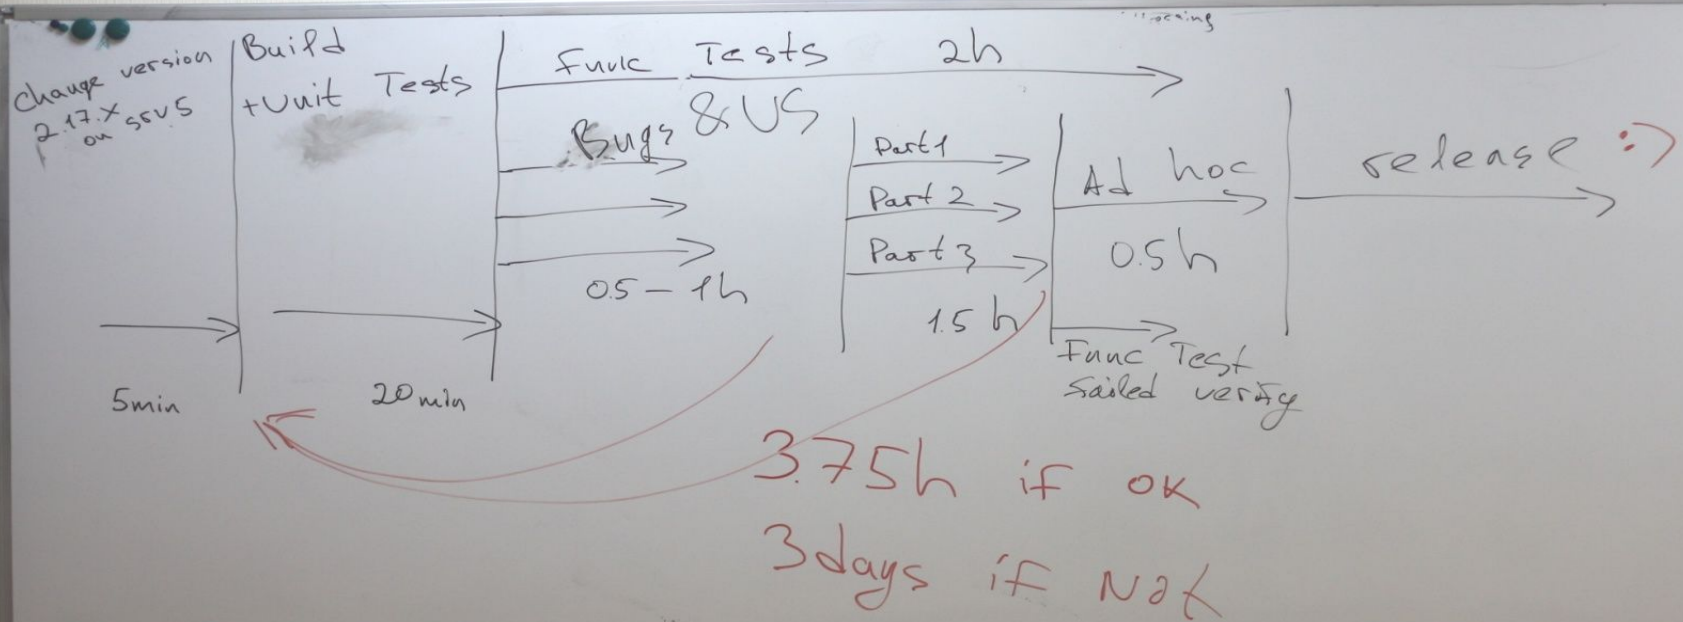 Change version
2.17.X
on ssv5
Build
+Unit Tests
Func Tests 2h
& US
Bugs
0.5 - 1h
Part1
Part 2
Part 3
1.5 h
Ad hoc
0.5h
Func Test
failed verify
release :)
5min
20min
3.75h if ok
3days if Not